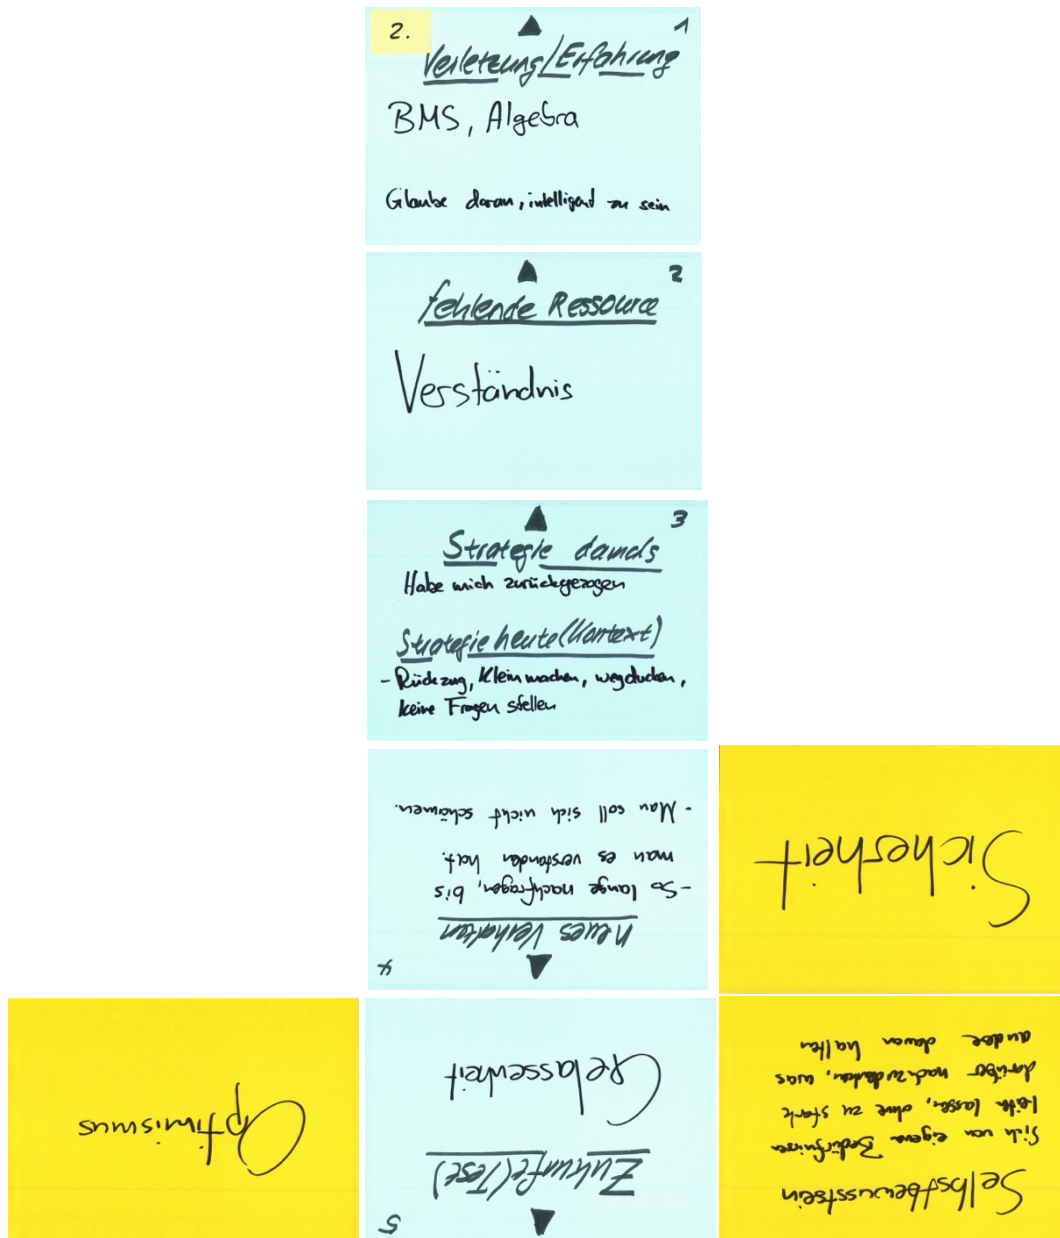 2.
1
Verletzung/Erfahrung
BMS, Algebra
Glaube daran, intelligent zu sein
2
fehlende Ressource
Verständnis
3
Strategie damals
Habe mich zurückgezogen
Strategie heute (Kontext)
- Rückzug, Klein machen, wegducken,
keine Fragen stellen
4
Neues Verhalten
- So lange nachfragen, bis
man es verstanden hat.
- Man soll sich nicht schämen.
Sicherheit
Optimismus
5
Zukunft (Test)
Gelassenheit
Selbstbewusstsein
Sich von eigenen Bedürfnissen
leiten lassen, ohne zu stark
darüber nachzudenken, was
andere davon halten